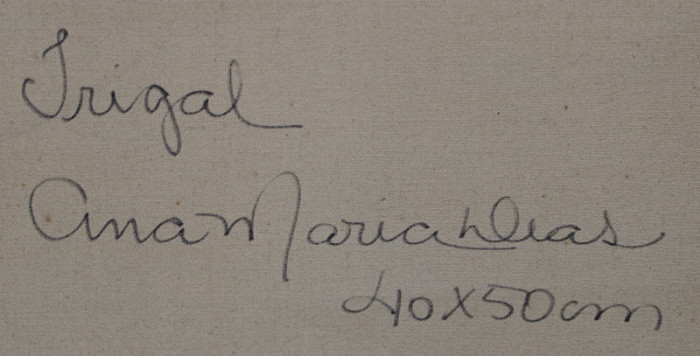 Trigal
Ana Maria Dias
40x50cm